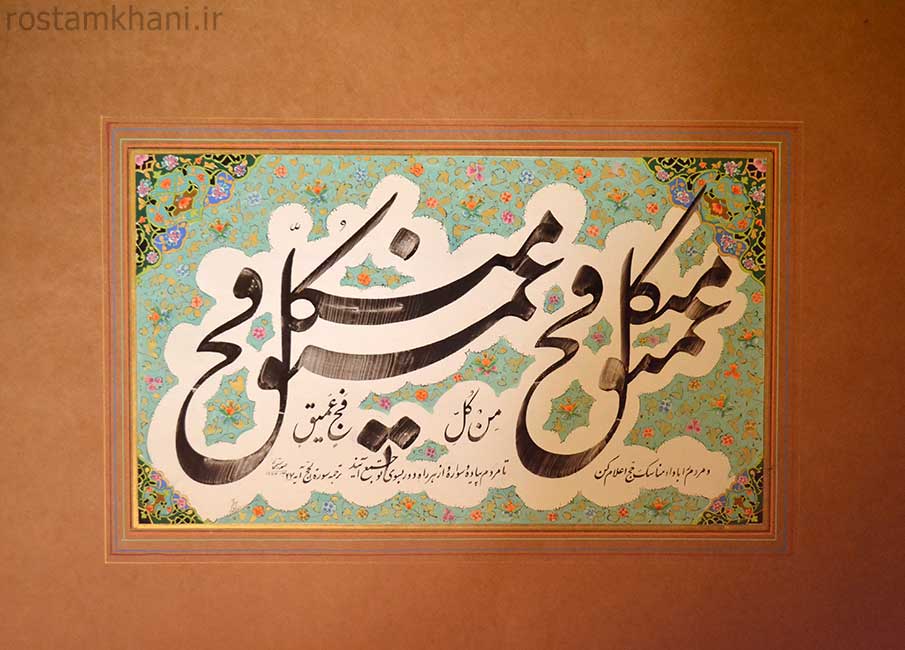 rostamkhani.ir
من کل فج عمیق
من کلّ فج عمیق
مِن کُلّ فج عَمیق
و مردم را باداء مناسک حج اعلام کن تا مردم پیاده و سواره از هر راه دور بسوی تو جمع آیند ترجمه سوره حج آیه